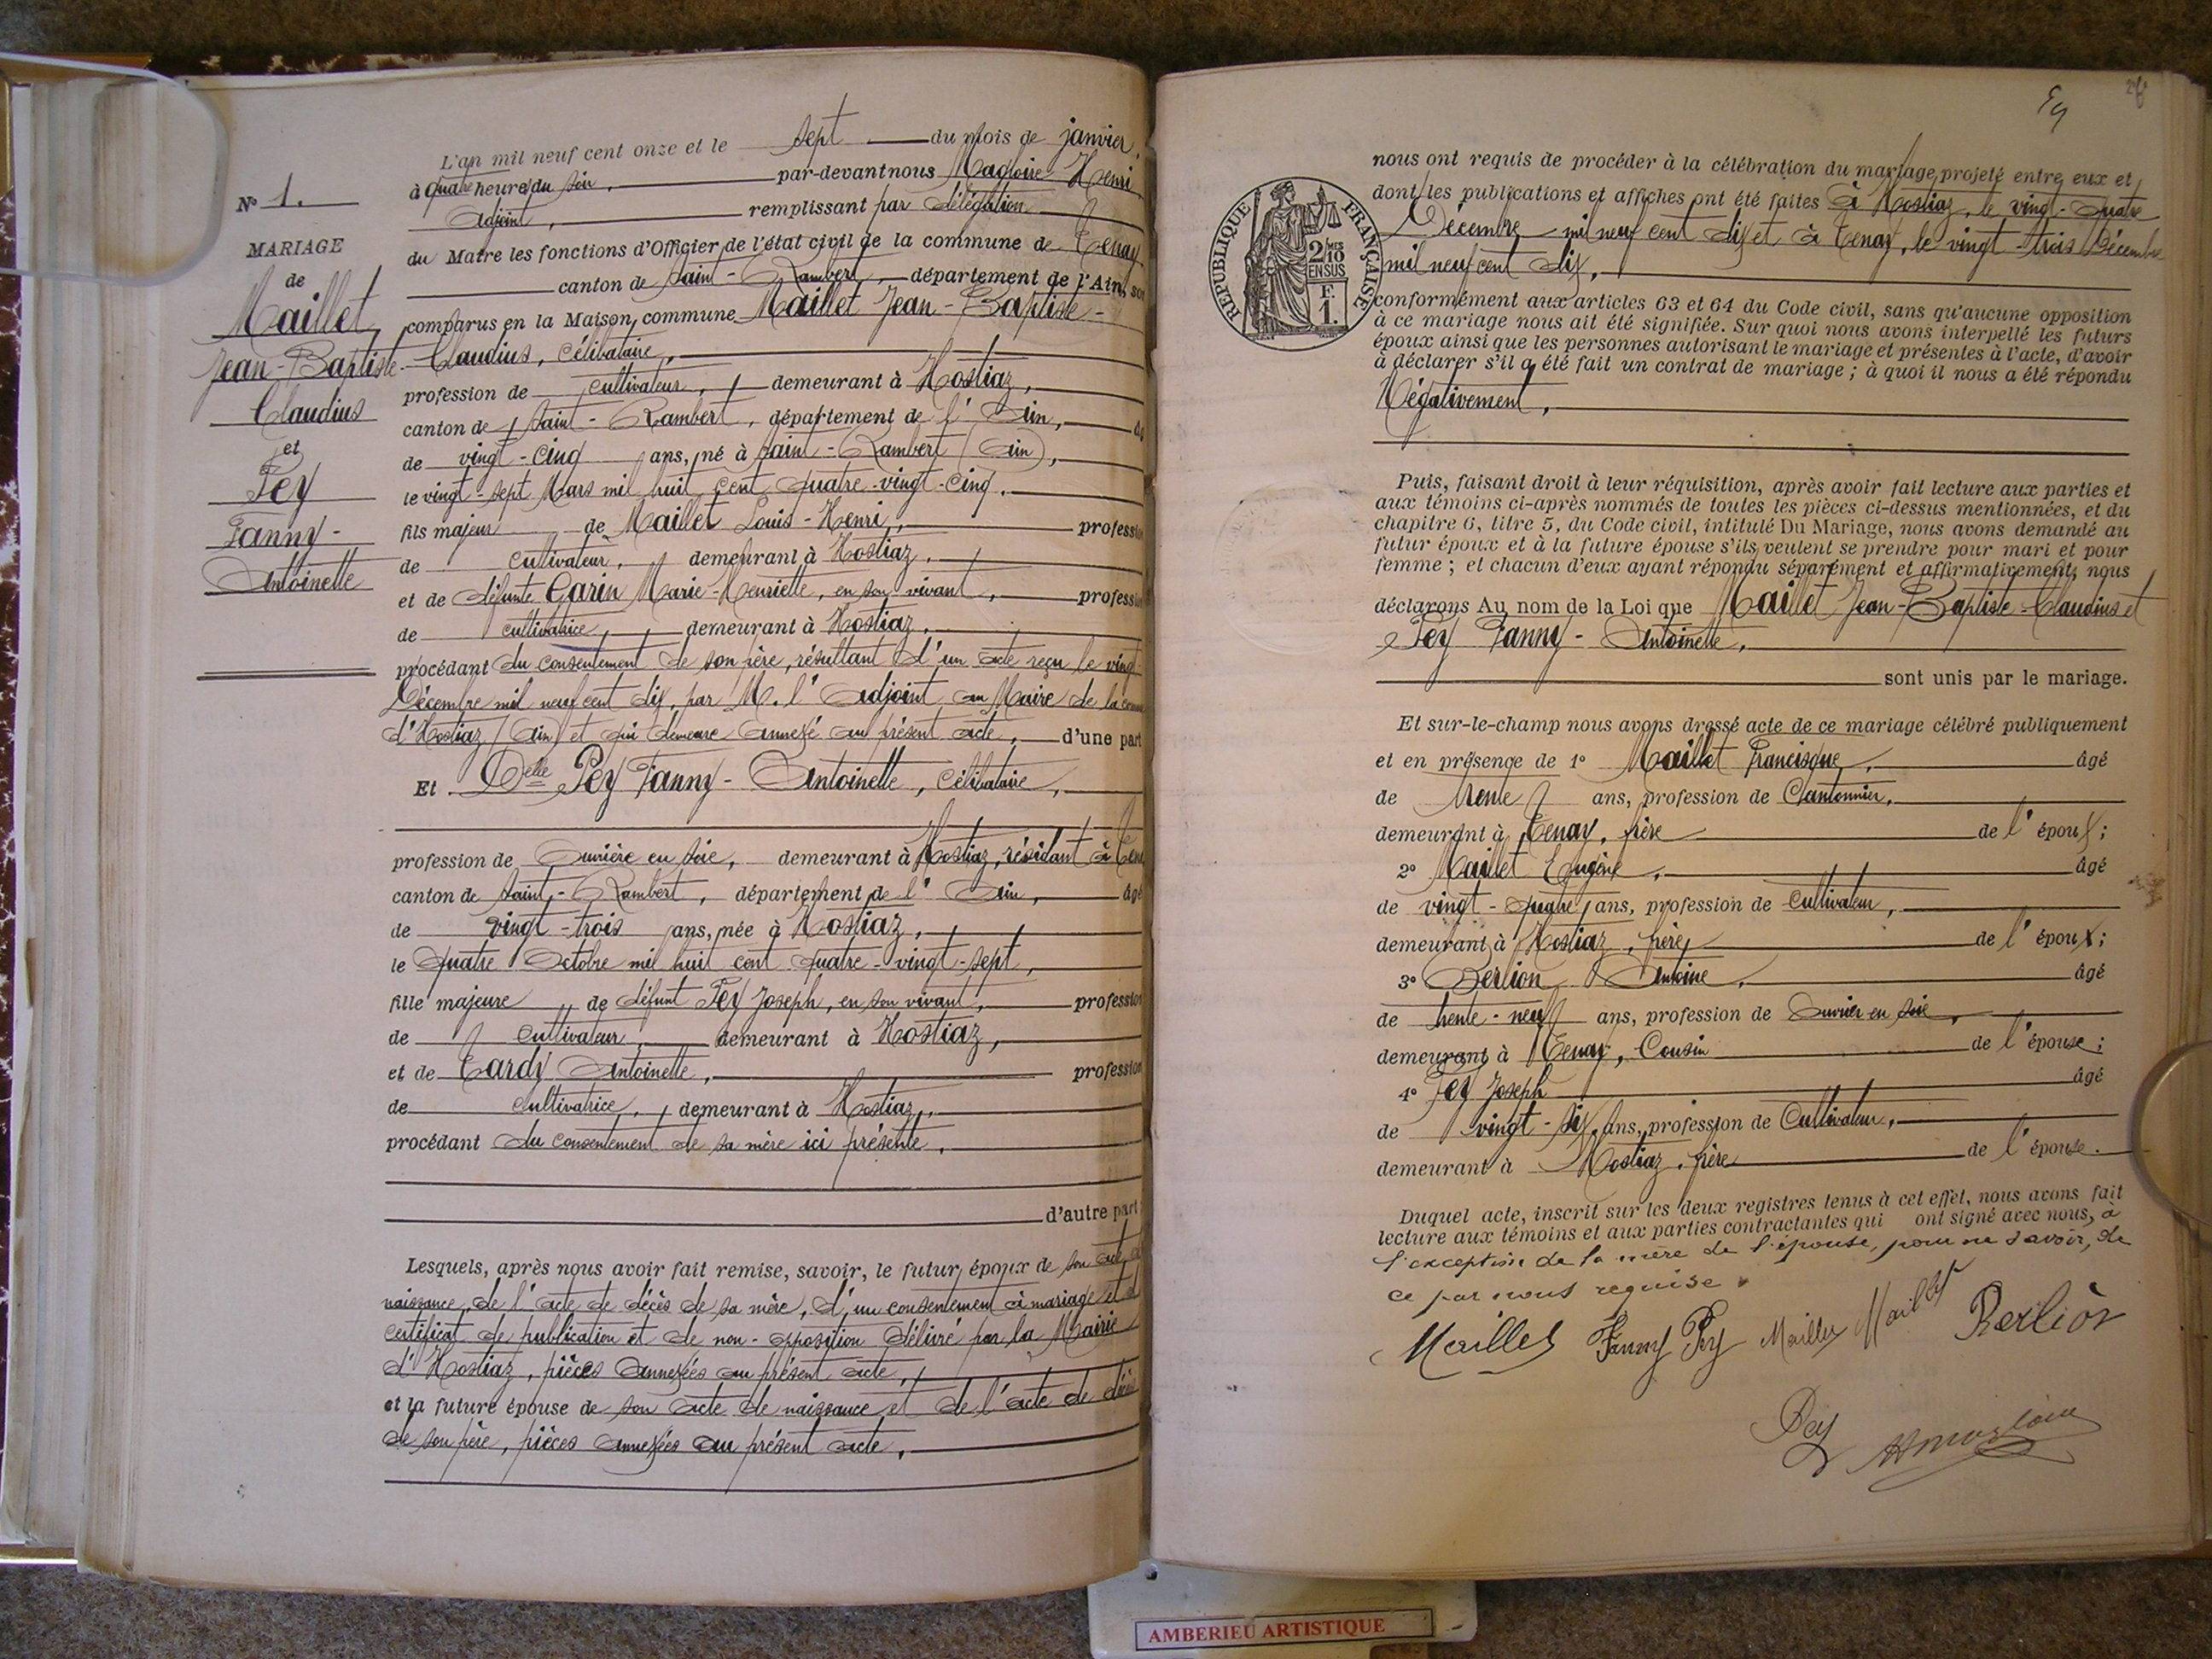 L'an mil neuf cent onze et le sept du mois de janvier,
à quatre heures du soir, par-devant nous Magloire Henri
Adjoint, remplissant par délégation
du Maire les fonctions d'Officier de l'état civil de la commune de Tenay
canton de Saint-Rambert, département de l'Ain, son
comparus en la Maison commune Maillet Jean-Baptiste-
Claudius, célibataire,
profession de cultivateur, demeurant à Hostiaz,
canton de Saint-Rambert, département de l'Ain,
de vingt-cinq ans, né à Saint-Rambert (Ain),
le vingt-sept Mars mil huit cent quatre-vingt-cinq,
fils majeur de Maillet Louis-Henri, profession
de cultivateur, demeurant à Hostiaz,
et de défunte Carin Marie-Henriette, en son vivant, profession
de cultivatrice, demeurant à Hostiaz,
procédant du consentement de son père, résultant d'un acte reçu le vingt
Décembre mil neuf cent dix, par M. l'Adjoint au Maire de la
d'Hostiaz (Ain) et qui demeure annexé au présent acte, d'une part
Et Delle Pey Fanny-Antoinette, célibataire,
profession de Ouvrière en soie, demeurant à Hostiaz, résidant à
canton de Saint-Rambert, département de l'Ain, âgé
de vingt-trois ans, née à Hostiaz,
le quatre Octobre mil huit cent quatre-vingt-sept,
fille majeure de défunt Pey Joseph, en son vivant, profession
de cultivateur, demeurant à Hostiaz,
et de Tardy Antoinette, profession
de cultivatrice, demeurant à Hostiaz,
procédant du consentement de sa mère ici présente,
d'autre part
Lesquels, après nous avoir fait remise, savoir, le futur époux de son acte
naissance, de l'acte de décès de sa mère, d'un consentement à mariage et
certificat de publication et de non-opposition délivré par la Mairie
d'Hostiaz, pièces annexées au présent acte,
et la future épouse de son acte de naissance et de l'acte de décès
de son père, pièces annexées au présent acte,
No 1.
MARIAGE
de
Maillet
Jean-Baptiste-
Claudius
et
Pey
Fanny-
Antoinette
nous ont requis de procéder à la célébration du mariage projeté entre eux et
dont les publications et affiches ont été faites à Hostiaz, le vingt-quatre
Décembre mil neuf cent dix et à Tenay, le vingt-trois Décembre
mil neuf cent dix,
RÉPUBLIQUE FRANÇAISE
2 MES
10
EN SUS
F.
1.
conformément aux articles 63 et 64 du Code civil, sans qu'aucune opposition
à ce mariage nous ait été signifiée. Sur quoi nous avons interpellé les futurs
époux ainsi que les personnes autorisant le mariage et présentes à l'acte, d'avoir
à déclarer s'il a été fait un contrat de mariage ; à quoi il nous a été répondu
Négativement,
Puis, faisant droit à leur réquisition, après avoir fait lecture aux parties et
aux témoins ci-après nommés de toutes les pièces ci-dessus mentionnées, et du
chapitre 6, titre 5, du Code civil, intitulé Du Mariage, nous avons demandé au
futur époux et à la future épouse s'ils veulent se prendre pour mari et pour
femme ; et chacun d'eux ayant répondu séparément et affirmativement, nous
déclarons Au nom de la Loi que Maillet Jean-Baptiste-Claudius et
Pey Fanny-Antoinette,
sont unis par le mariage.
Et sur-le-champ nous avons dressé acte de ce mariage célébré publiquement
et en présence de 1° Maillet Francisque, âgé
de trente ans, profession de Cantonnier,
demeurant à Tenay, frère de l'époux ;
2° Maillet Eugène, âgé
de vingt-quatre ans, profession de Cultivateur,
demeurant à Hostiaz, frère, de l'époux ;
3° Berlion Antoine, âgé
de trente-neuf ans, profession de Ouvrier en soie,
demeurant à Tenay, Cousin de l'épouse ;
4° Pey Joseph âgé
de vingt-six ans, profession de Cultivateur,
demeurant à Hostiaz, frère de l'épouse.
Duquel acte, inscrit sur les deux registres tenus à cet effet, nous avons fait
lecture aux témoins et aux parties contractantes qui ont signé avec nous, à
l'exception de la mère de l'épouse, pour ne savoir, de
ce par nous requise.
Maillet Fanny Pey Maillet Maillet Berlion
Pey HMagloire
AMBERIEU ARTISTIQUE